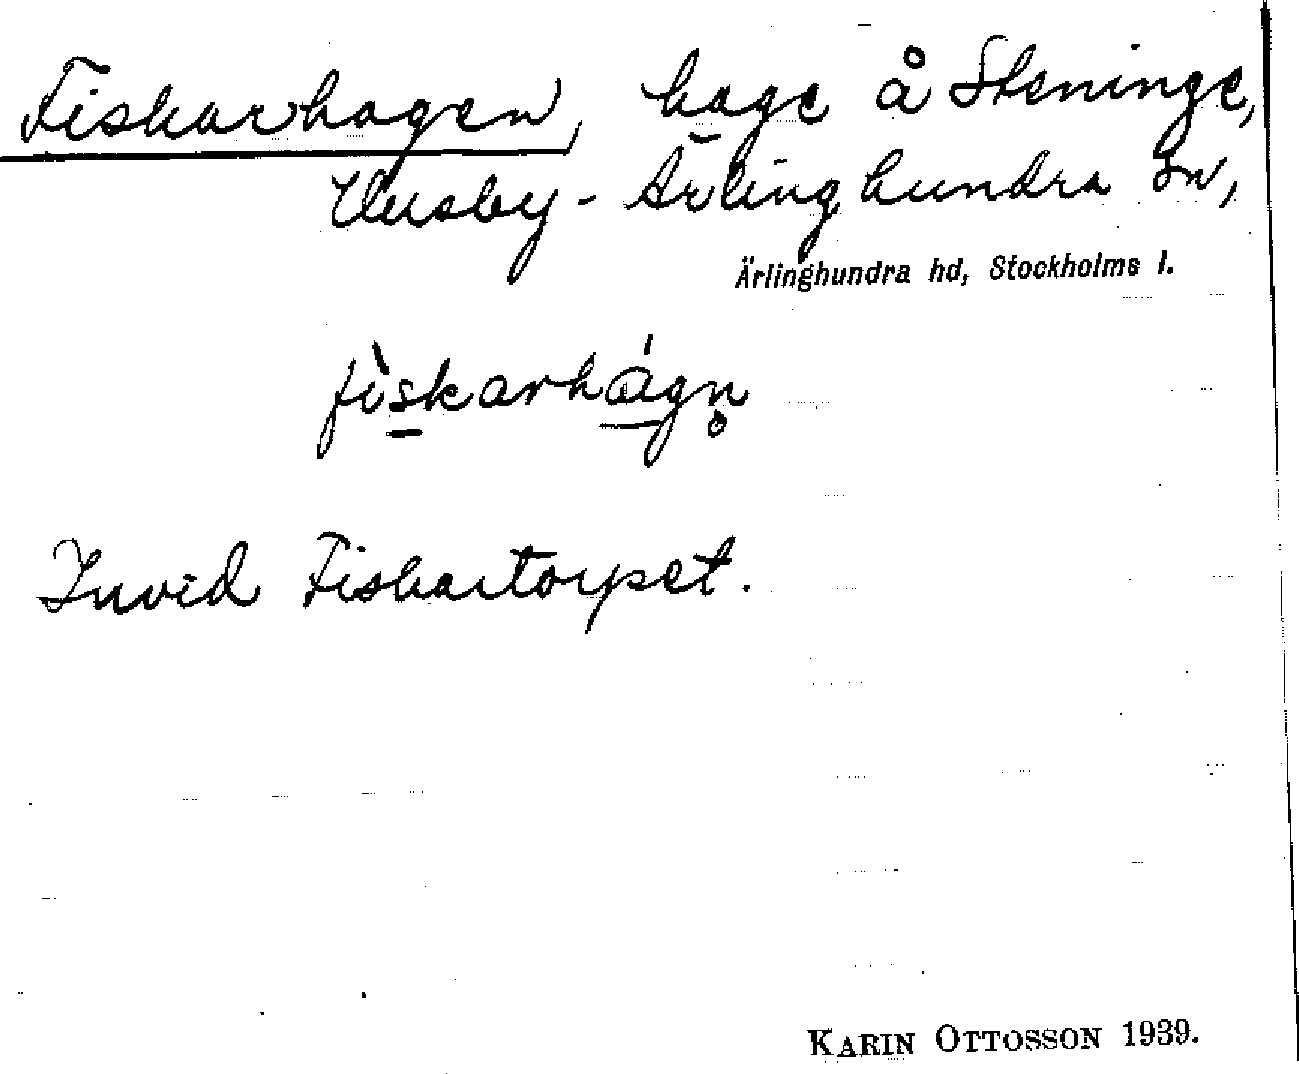 Fiskarhagen, hage å Steninge,
Husby-Ärlinghundra sn,
Ärlinghundra hd, Stockholms l.
fìskarhágn̥
Invid Fiskartorpet.
KARIN OTTOSSON 1939.